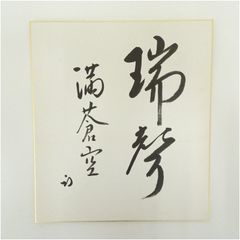 瑞聲
満蒼空